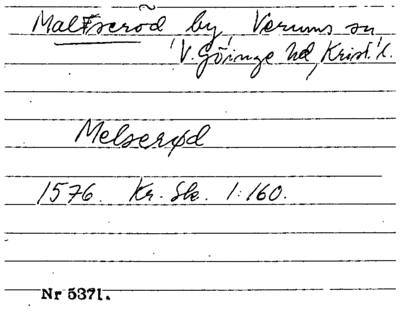 Maltseröd by, Verums sn
V. Göinge hd, Krist. l.
Melserød
1576. Kr. Sk. 1:160.
Nr 5371.